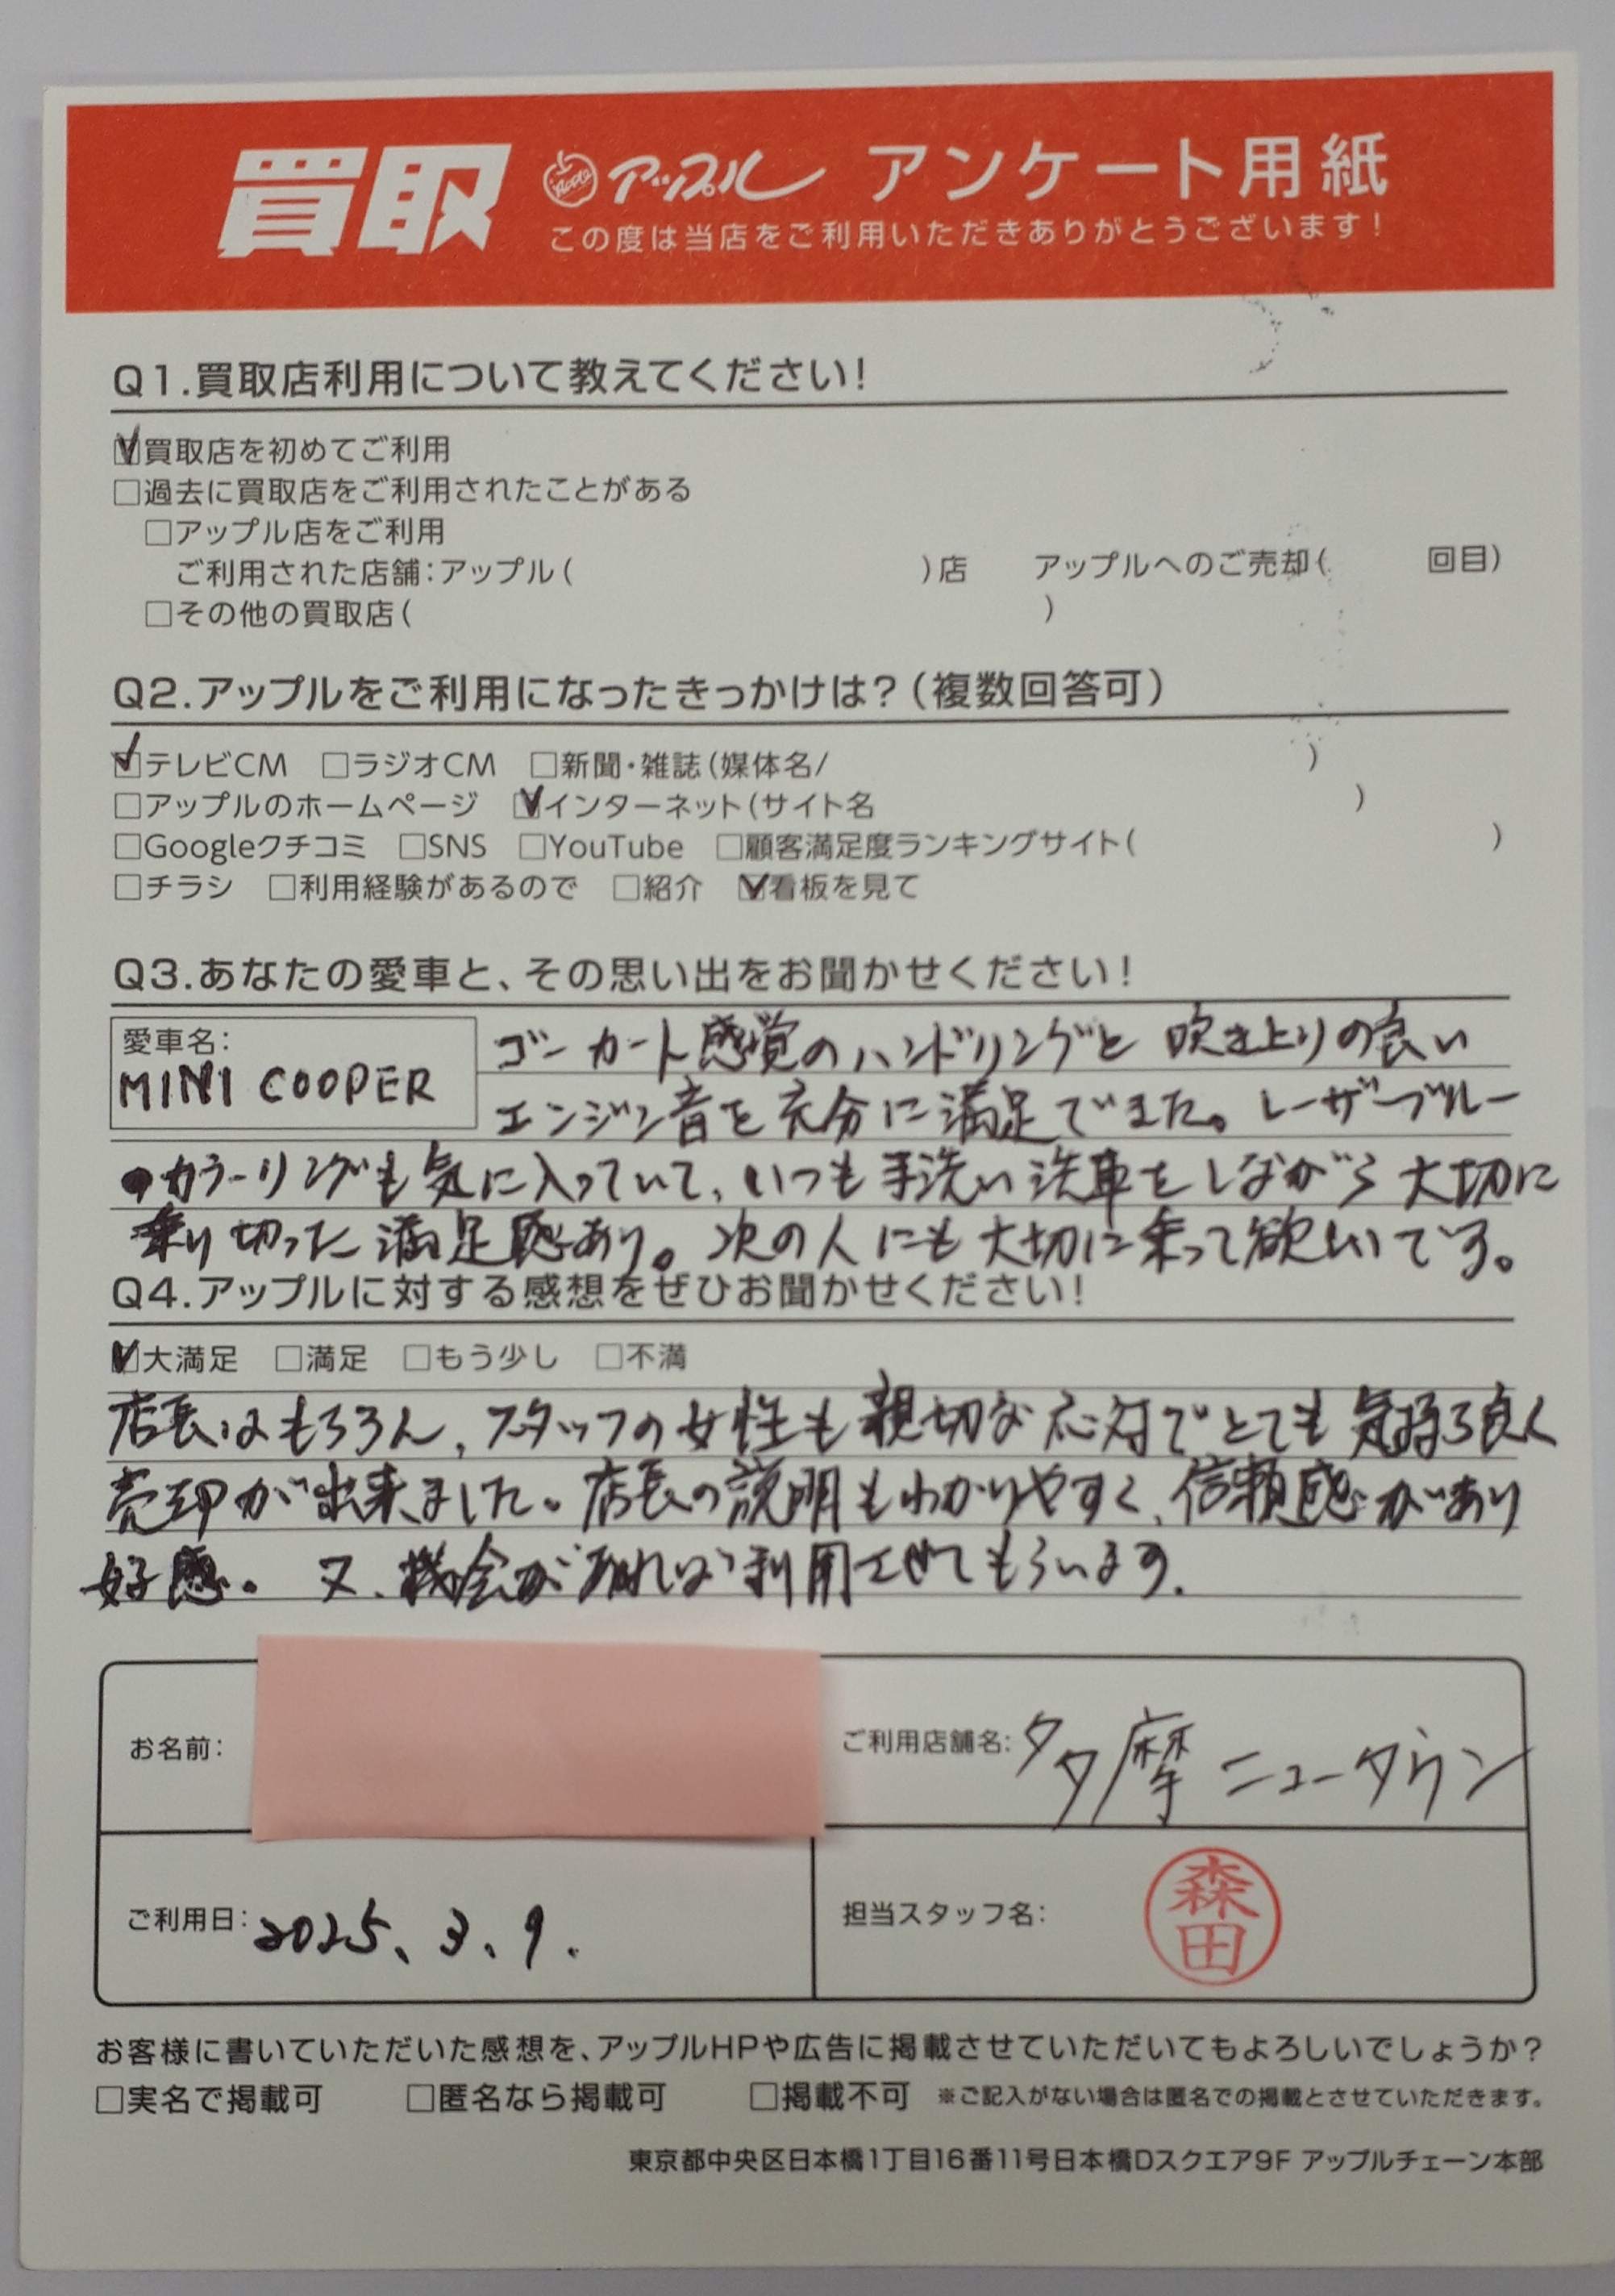 買取 Apple アップル アンケート用紙
この度は当店をご利用いただきありがとうございます!
Q1.買取店利用について教えてください!
☑買取店を初めてご利用
□過去に買取店をご利用されたことがある
□アップル店をご利用
ご利用された店舗:アップル( )店 アップルへのご売却( 回目)
□その他の買取店( )
Q2.アップルをご利用になったきっかけは?(複数回答可)
☑テレビCM □ラジオCM □新聞・雑誌(媒体名/ )
□アップルのホームページ ☑インターネット(サイト名 )
□Googleクチコミ □SNS □YouTube □顧客満足度ランキングサイト( )
□チラシ □利用経験があるので □紹介 ☑看板を見て
Q3.あなたの愛車と、その思い出をお聞かせください!
愛車名:
MINI COOPER
ゴーカート感覚のハンドリングと吹き上りの良い
エンジン音を充分に満足でました。レーザーブルー
のカラーリングも気に入っていて、いつも手洗い洗車をしながら大切に
乗り切った満足感あり。次の人にも大切に乗って欲しいです。
Q4.アップルに対する感想をぜひお聞かせください!
☑大満足 □満足 □もう少し □不満
店長はもちろん、スタッフの女性も親切な応対でとても気持ち良く
売却が出来ました。店長の説明もわかりやすく、信頼感があり
好感。又、機会があれば利用させてもらいます。
お名前:
ご利用店舗名:多摩ニュータウン
ご利用日:2025、3、9.
担当スタッフ名: 森田
お客様に書いていただいた感想を、アップルHPや広告に掲載させていただいてもよろしいでしょうか?
□実名で掲載可 □匿名なら掲載可 □掲載不可 ※ご記入がない場合は匿名での掲載とさせていただきます。
東京都中央区日本橋1丁目16番11号日本橋Dスクエア9F アップルチェーン本部